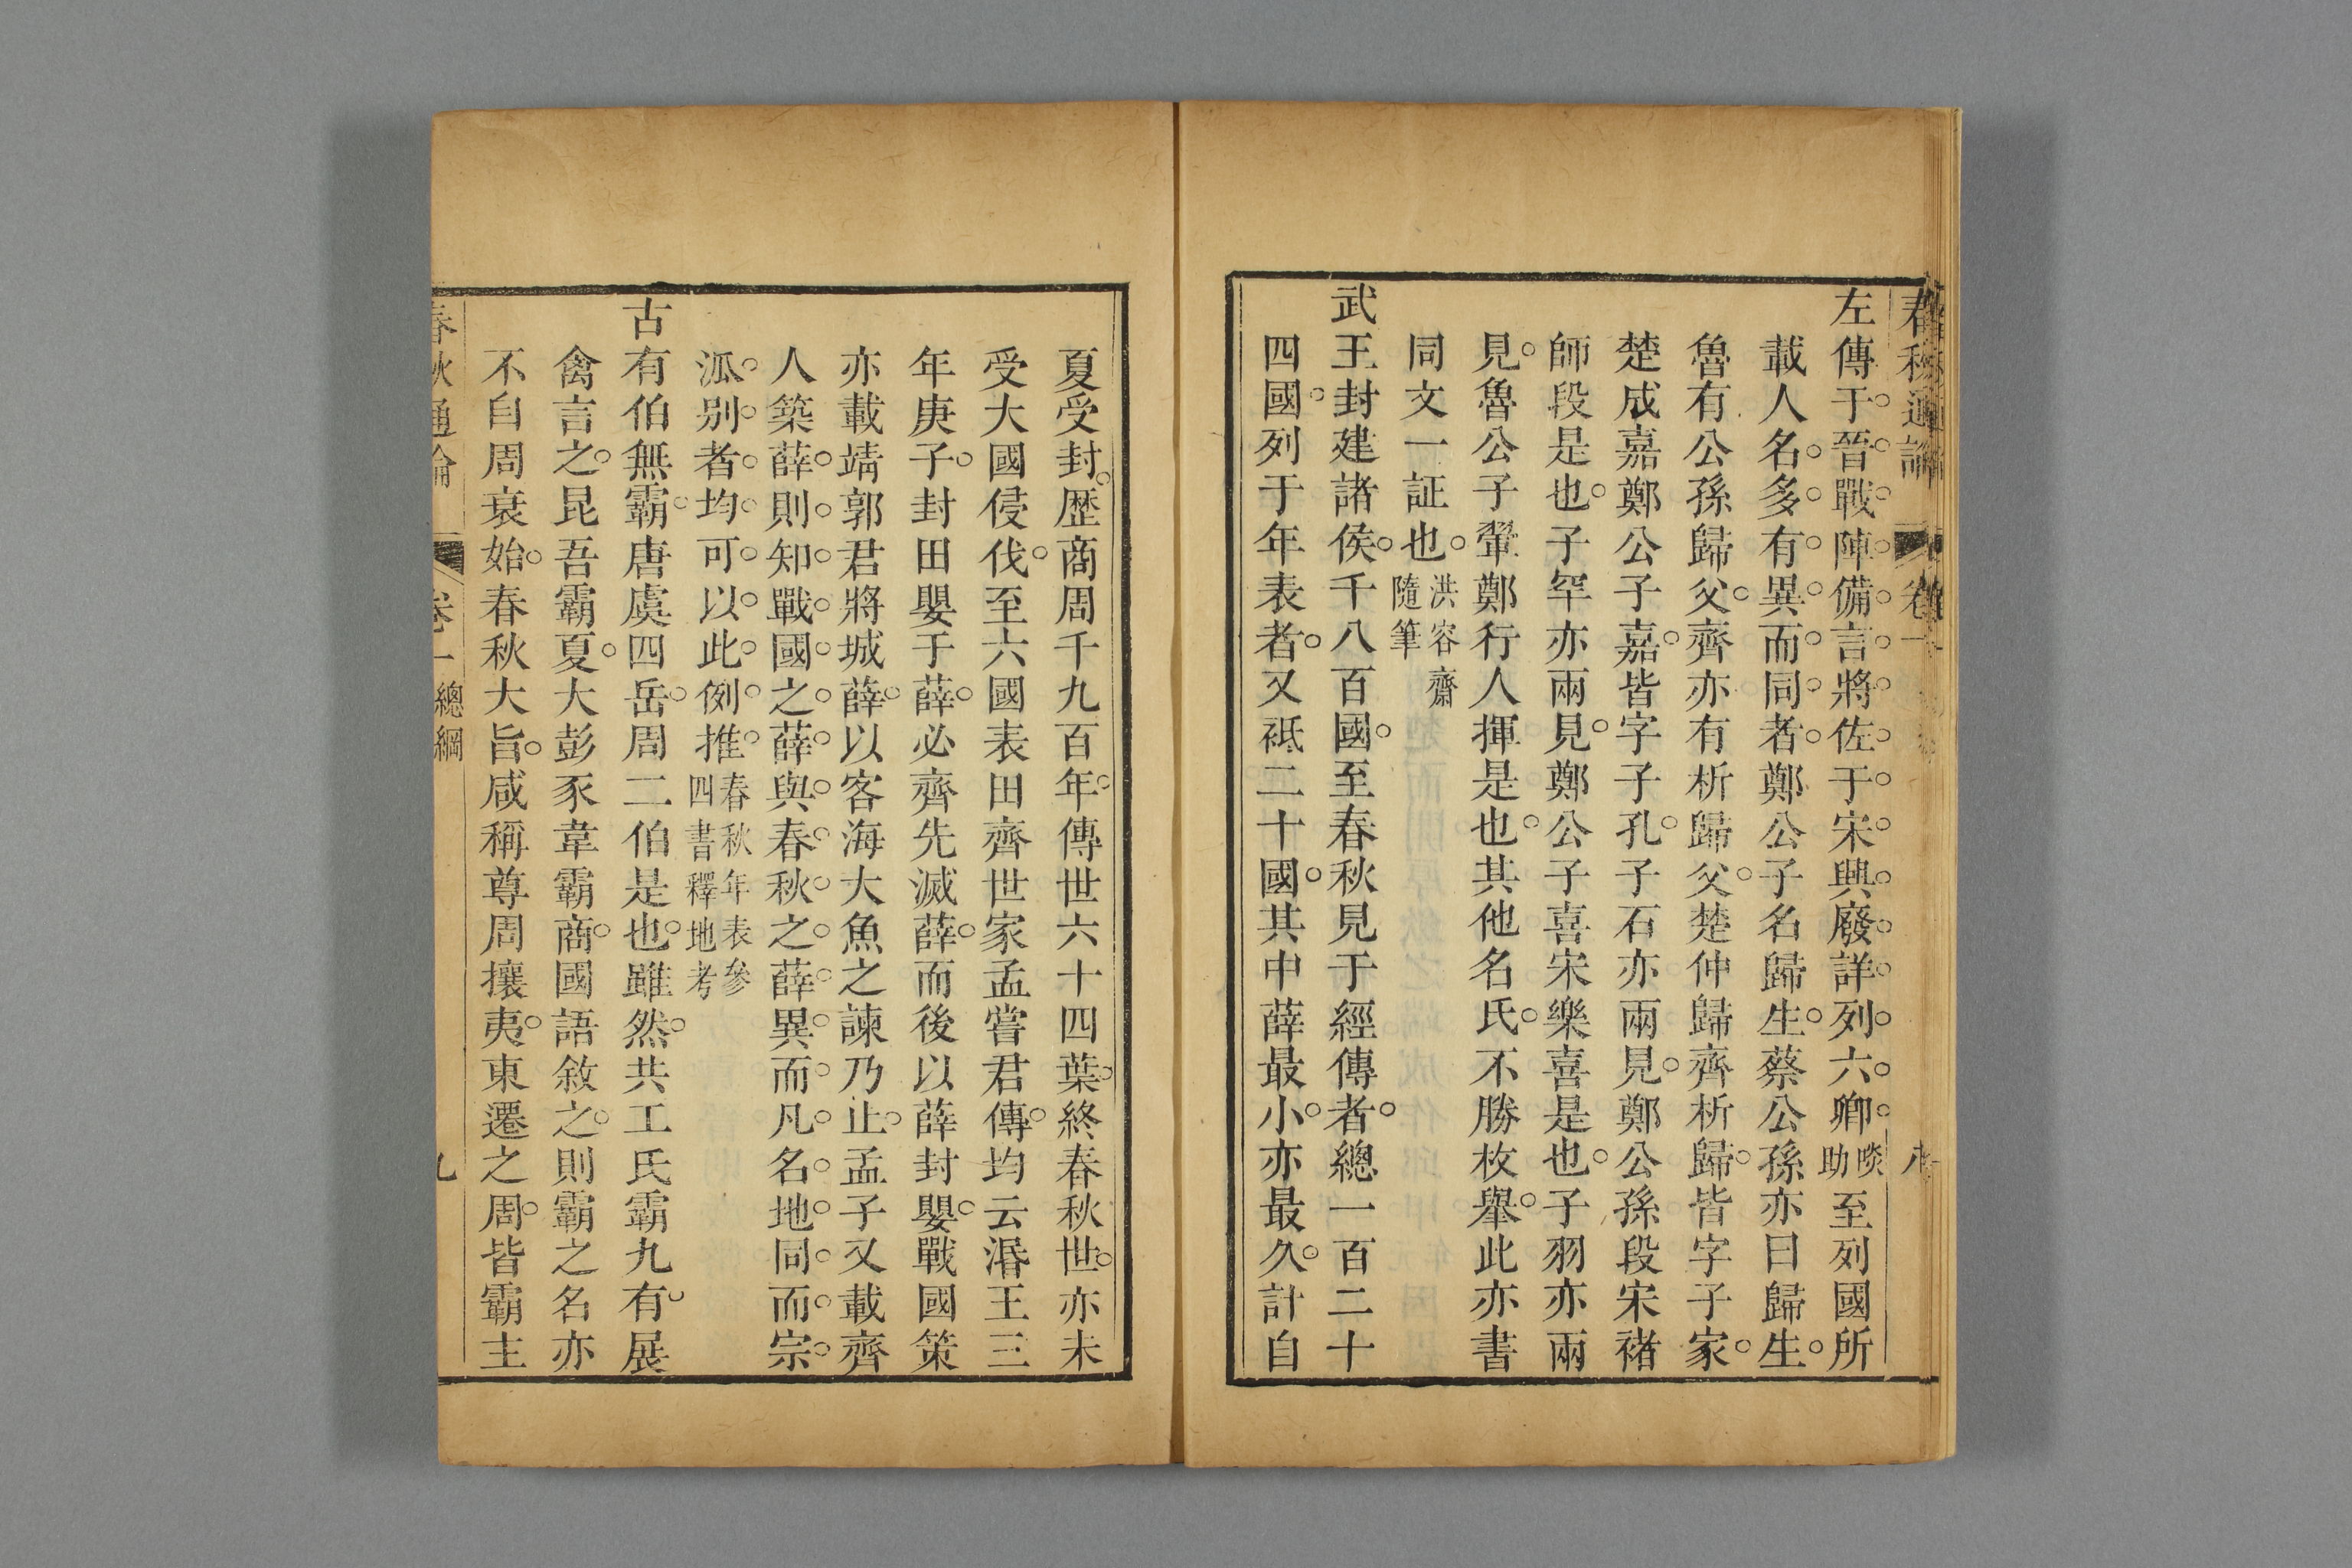 春秋通論 卷一 八
左傳于晉戰陣備言將佐于宋興廢詳列六卿啖助至列國所
載人名多有異而同者鄭公子名歸生蔡公孫亦曰歸生
魯有公孫歸父齊亦有析歸父楚仲歸齊析歸皆字子家
楚成嘉鄭公子嘉皆字子孔子石亦兩見鄭公孫段宋褚
師段是也子罕亦兩見鄭公子喜宋樂喜是也子羽亦兩
見魯公子翬鄭行人揮是也其他名氏不勝枚舉此亦書
同文一証也洪容齋隨筆
武王封建諸侯千八百國至春秋見于經傳者總一百二十
四國列于年表者又袛二十國其中薛最小亦最久計自
夏受封歷商周千九百年傳世六十四葉終春秋世亦未
受大國侵伐至六國表田齊世家孟嘗君傳均云湣王三
年庚子封田嬰于薛必齊先滅薛而後以薛封嬰戰國策
亦載靖郭君將城薛以客海大魚之諫乃止孟子又載齊
人築薛則知戰國之薛與春秋之薛異而凡名地同而宗
泒别者均可以此例推春秋年表參四書釋地考
古有伯無霸唐虞四岳周二伯是也雖然共工氏霸九有展
禽言之昆吾霸夏大彭豕韋霸商國語敘之則霸之名亦
不自周衰始春秋大旨咸稱尊周攘夷東遷之周皆霸主
春秋通論 卷一 總綱 九